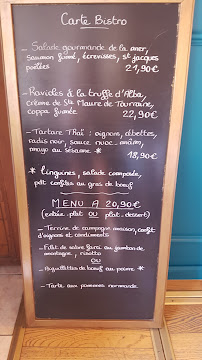 Carte Bistro
- Salade gourmande de la mer,
saumon fumé, écrevisses, st jacques
poêlées 21,90€
- Ravioles à la truffe d'Alba,
crème de Ste Maure de Touraine,
coppa fumée 22,90€
- Tartare Thaï : oignons, 
radis noir, sauce nuoc-mâm,
mayo au sésame * 18,90€
* linguines, salade composée,
pdt confites au gras de bœuf
MENU A 20,90€
(entrée-plat OU plat-dessert)
- Terrine de campagne maison, confit
d'oignons et condiments
- Filet de sabre farci au jambon de
montagne, risotto
OU
- Aiguillettes de bœuf au poivre *
- Tarte aux pommes normande